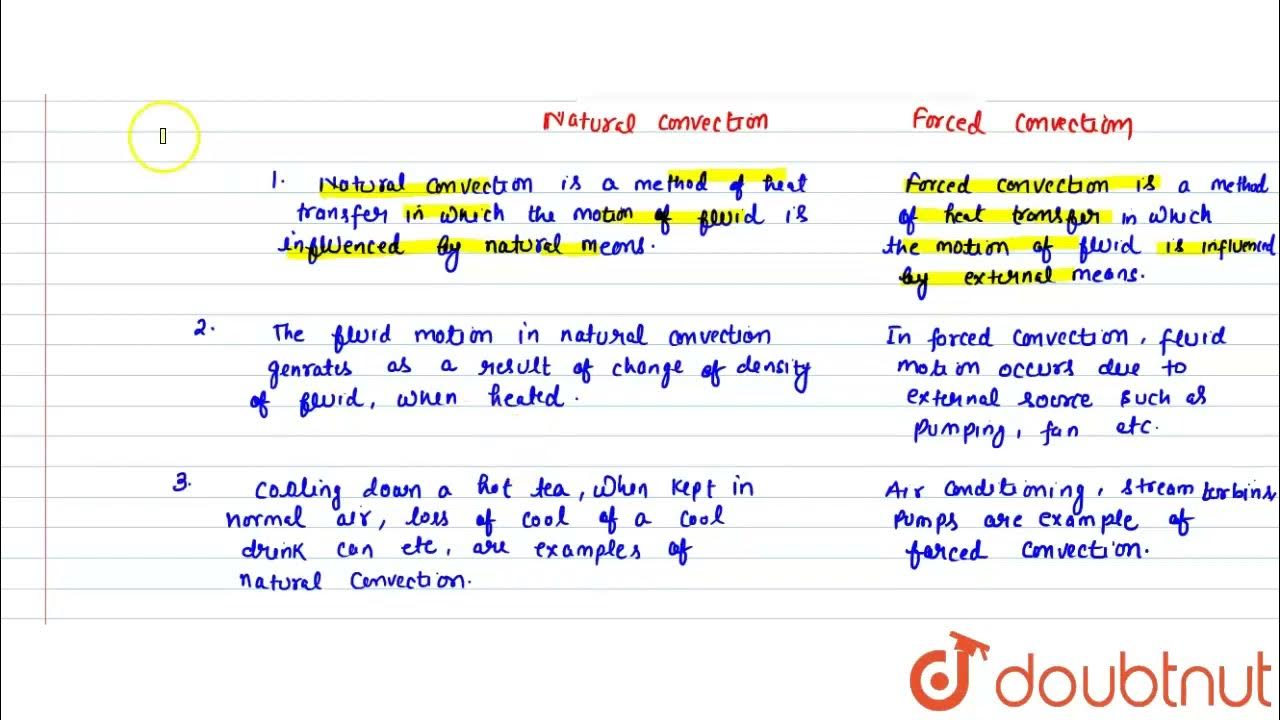 Natural convection
Forced convection
1. Natural convection is a method of heat
transfer in which the motion of fluid is
influenced by natural means.
Forced convection is a method
of heat transfer in which
the motion of fluid is influenced
by external means.
2. The fluid motion in natural convection
genrates as a result of change of density
of fluid, when heated.
In forced convection, fluid
motion occurs due to
external source such as
pumping, fan etc.
3. Cooling down a hot tea, when kept in
normal air, loss of cool of a cool
drink can etc, are examples of
natural convection.
Air conditioning, stream
pumps are example of
forced convection.
doubtnut